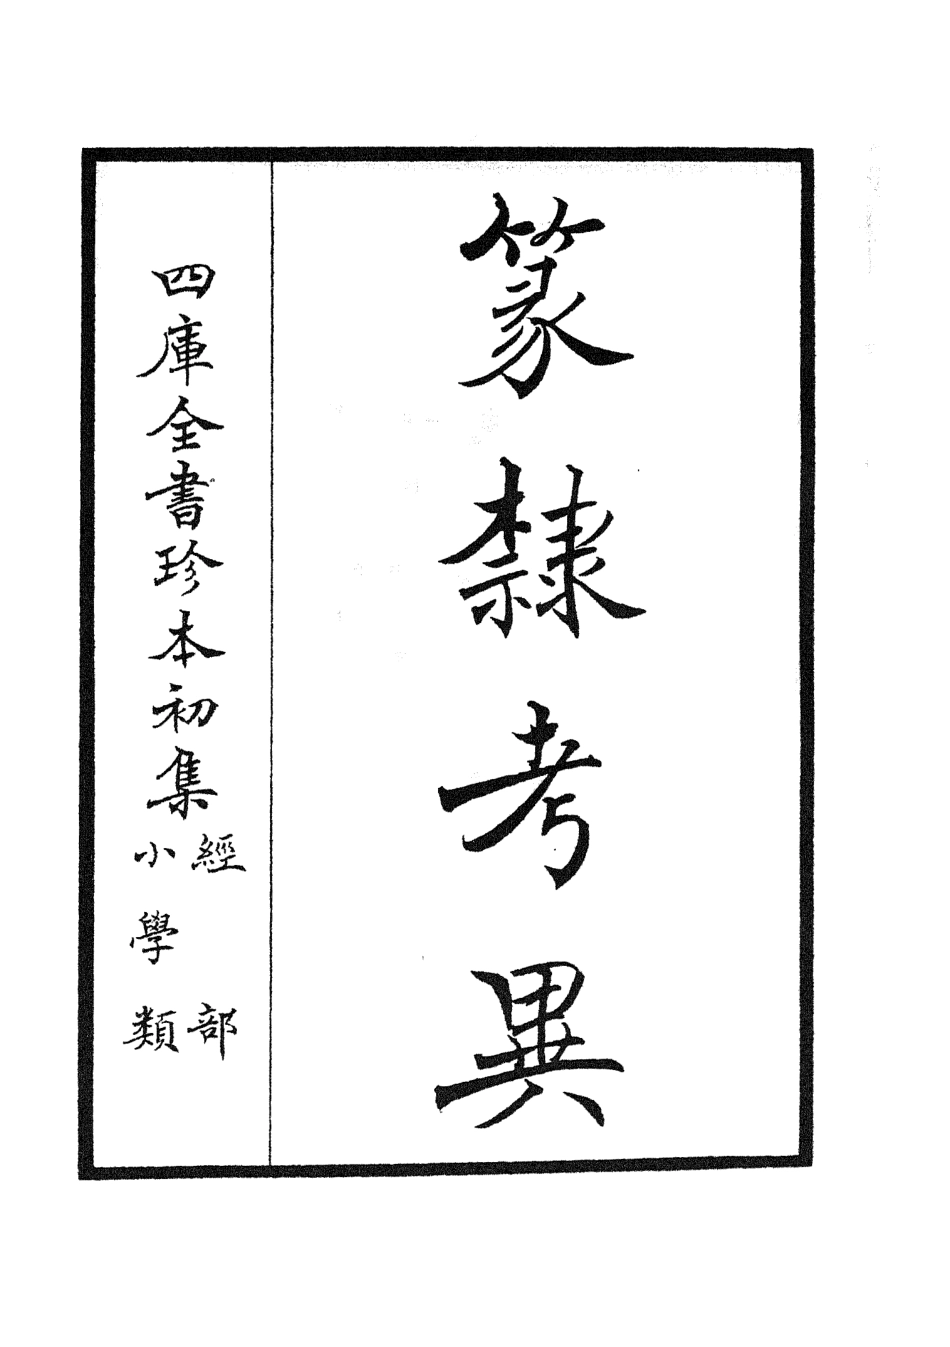 篆隸考異
四庫全書珍本初集
經部
小學類